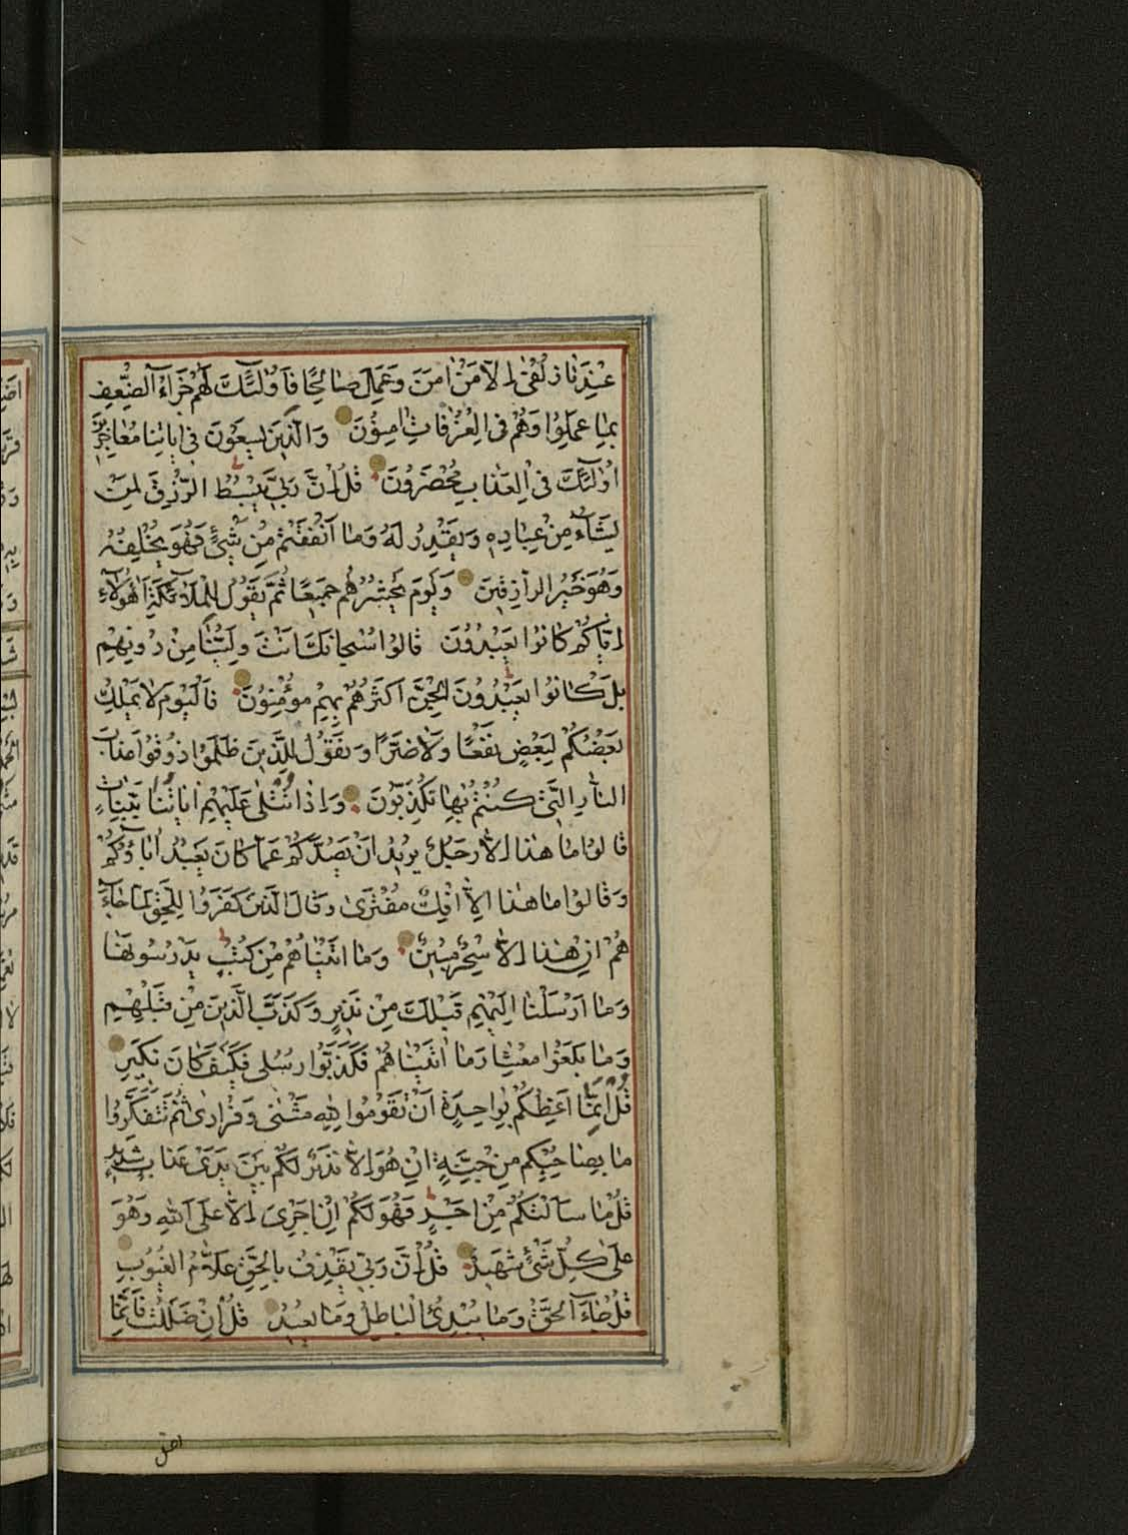 عِنْدَنَا زُلْفَىٰ اِلَّا مَنْ اٰمَنَ وَعَمِلَ صَالِحًا فَاُولٰٓئِكَ لَهُمْ جَزَآءُ الضِّعْفِ
بِمَا عَمِلُوا وَهُمْ فِى الْغُرُفَاتِ اٰمِنُونَ وَالَّذِينَ يَسْعَوْنَ فِى اٰيَاتِنَا مُعَاجِزِينَ
اُولٰٓئِكَ فِى الْعَذَابِ مُحْضَرُونَ قُلْ اِنَّ رَبِّى يَبْسُطُ الرِّزْقَ لِمَنْ
يَشَآءُ مِنْ عِبَادِهِ وَيَقْدِرُ لَهُ وَمَا اَنْفَقْتُمْ مِنْ شَىْءٍ فَهُوَ يُخْلِفُهُ
وَهُوَ خَيْرُ الرَّازِقِينَ وَيَوْمَ يَحْشُرُهُمْ جَمِيعًا ثُمَّ يَقُولُ لِلْمَلَآئِكَةِ اَهٰٓؤُلَآءِ
اِيَّاكُمْ كَانُوا يَعْبُدُونَ قَالُوا سُبْحَانَكَ اَنْتَ وَلِيُّنَا مِنْ دُونِهِمْ
بَلْ كَانُوا يَعْبُدُونَ الْجِنَّ اَكْثَرُهُمْ بِهِمْ مُؤْمِنُونَ فَالْيَوْمَ لَا يَمْلِكُ
بَعْضُكُمْ لِبَعْضٍ نَفْعًا وَلَا ضَرًّا وَنَقُولُ لِلَّذِينَ ظَلَمُوا ذُوقُوا عَذَابَ
النَّارِ الَّتِى كُنْتُمْ بِهَا تُكَذِّبُونَ وَاِذَا تُتْلٰى عَلَيْهِمْ اٰيَاتُنَا بَيِّنَاتٍ
قَالُوا مَا هٰذَا اِلَّا رَجُلٌ يُرِيدُ اَنْ يَصُدَّكُمْ عَمَّا كَانَ يَعْبُدُ اٰبَآؤُكُمْ
وَقَالُوا مَا هٰذَا اِلَّا اِفْكٌ مُفْتَرًى وَقَالَ الَّذِينَ كَفَرُوا لِلْحَقِّ لَمَّا جَآءَ
هُمْ اِنْ هٰذَا اِلَّا سِحْرٌ مُبِينٌ وَمَا اٰتَيْنَاهُمْ مِنْ كُتُبٍ يَدْرُسُونَهَا
وَمَا اَرْسَلْنَا اِلَيْهِمْ قَبْلَكَ مِنْ نَذِيرٍ وَكَذَّبَ الَّذِينَ مِنْ قَبْلِهِمْ
وَمَا بَلَغُوا مِعْشَارَ مَا اٰتَيْنَاهُمْ فَكَذَّبُوا رُسُلِى فَكَيْفَ كَانَ نَكِيرِ
قُلْ اِنَّمَا اَعِظُكُمْ بِوَاحِدَةٍ اَنْ تَقُومُوا لِلّٰهِ مَثْنٰى وَفُرَادٰى ثُمَّ تَتَفَكَّرُوا
مَا بِصَاحِبِكُمْ مِنْ جِنَّةٍ اِنْ هُوَ اِلَّا نَذِيرٌ لَكُمْ بَيْنَ يَدَىْ عَذَابٍ شَدِيدٍ
قُلْ مَا سَاَلْتُكُمْ مِنْ اَجْرٍ فَهُوَ لَكُمْ اِنْ اَجْرِىَ اِلَّا عَلَى اللّٰهِ وَهُوَ
عَلٰى كُلِّ شَىْءٍ شَهِيدٌ قُلْ اِنَّ رَبِّى يَقْذِفُ بِالْحَقِّ عَلَّامُ الْغُيُوبِ
قُلْ جَآءَ الْحَقُّ وَمَا يُبْدِئُ الْبَاطِلُ وَمَا يُعِيدُ قُلْ اِنْ ضَلَلْتُ فَاِنَّمَا
اضل